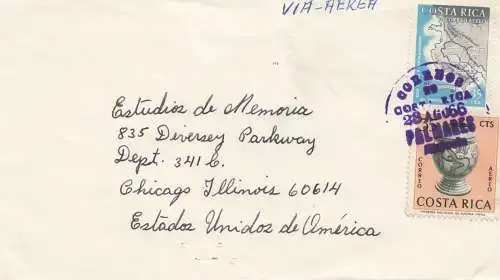 VIA-AEREA
COSTA RICA
CORREOS
DE
COSTA RICA
PALMARES
CTS
CORREO
AEREO
COSTA RICA
Estudios de Memoria
835 Diversey Parkway
Dept. 341 C.
Chicago Illinois 60614
Estados Unidos de América